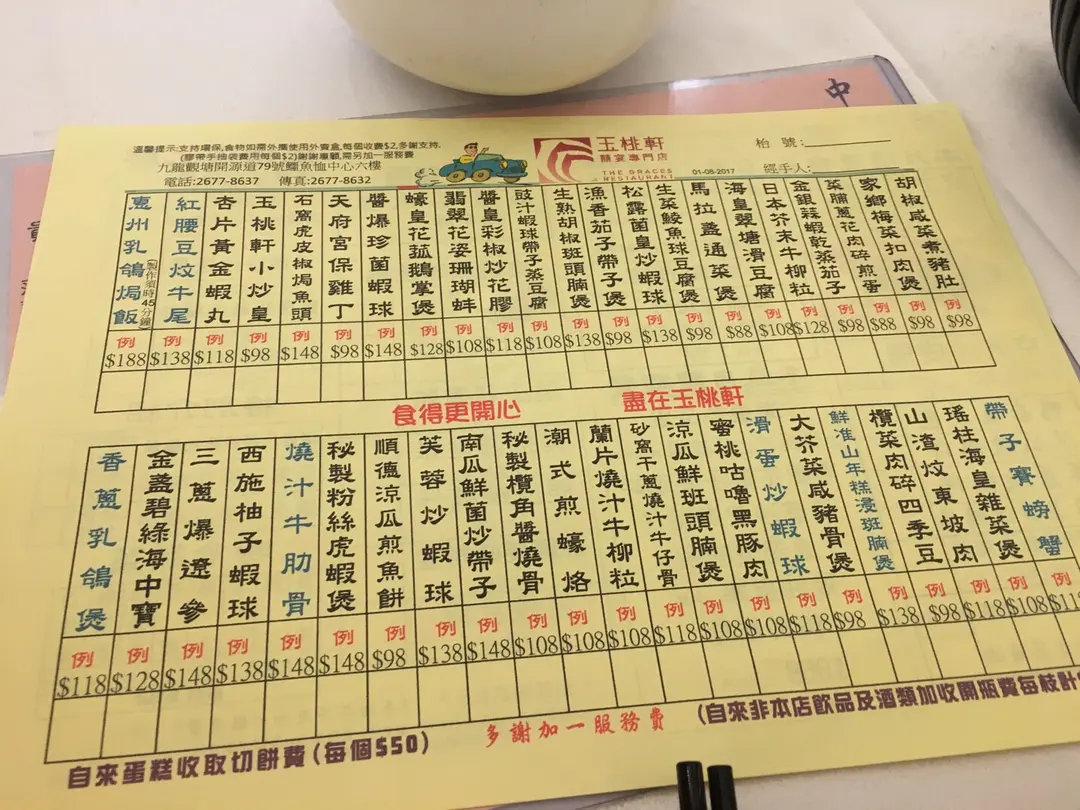 溫馨提示:支持環保,食物如需外攜使用外賣盒,每個收費$2,多謝支持.
(膠帶手抽袋費用每個$2)謝謝惠顧,需另加一服務費
九龍觀塘開源道79號鱷魚恤中心六樓
電話:2677-8637 傳真:2677-8632
玉桃軒
囍宴專門店
THE GRACES
RESTAURANT
01-08-2017
枱 號:
經手人:
中
惠州乳鴿焗飯
(製作須時45分鐘)
紅腰豆炆牛尾
杏片黃金蝦丸
玉桃軒小炒皇
石窩虎皮椒焗魚頭
天府宮保雞丁
醬爆珍菌蝦球
蠔皇花菰鵝掌煲
翡翠花姿珊瑚蚌
醬皇彩椒炒花膠
豉汁蝦球帶子蒸豆腐
生熟胡椒斑頭腩煲
漁香茄子帶子煲
松露菌皇炒蝦球
生菜鯪魚球豆腐煲
馬拉盞通菜煲
海皇翠塘滑豆腐
日本芥末牛柳粒
金銀蒜蝦乾蒸茄子
菜脯蔥花肉碎煎蛋
家鄉梅菜扣肉煲
胡椒咸菜煮豬肚
例 例 例 例 例 例 例 例 例 例 例 例 例 例 例 例 例 例 例 例 例 例
$188 $138 $118 $98 $148 $98 $148 $128 $108 $118 $108 $138 $98 $138 $98 $88 $108 $128 $98 $88 $98 $98
食得更開心 盡在玉桃軒
香蔥乳鴿煲
金盞碧綠海中寶
三蔥爆遼參
西施柚子蝦球
燒汁牛肋骨
秘製粉絲虎蝦煲
順德涼瓜煎魚餅
芙蓉炒蝦球
南瓜鮮菌炒帶子
秘製欖角醬燒骨
潮式煎蠔烙
蘭片燒汁牛柳粒
砂窩干蔥燒汁牛仔骨
涼瓜鮮班頭腩煲
蜜桃咕嚕黑豚肉
滑蛋炒蝦球
大芥菜咸豬骨煲
鮮淮山年糕浸斑腩煲
欖菜肉碎四季豆
山渣炆東坡肉
瑤柱海皇雜菜煲
帶子賽螃蟹
例 例 例 例 例 例 例 例 例 例 例 例 例 例 例 例 例 例 例 例 例 例
$118 $128 $148 $138 $148 $148 $98 $138 $148 $108 $108 $108 $118 $108 $108 $118 $98 $138 $98 $118 $108
自來蛋糕收取切餅費(每個$50)
多謝加一服務費
(自來非本店飲品及酒類加收開瓶費每枝計